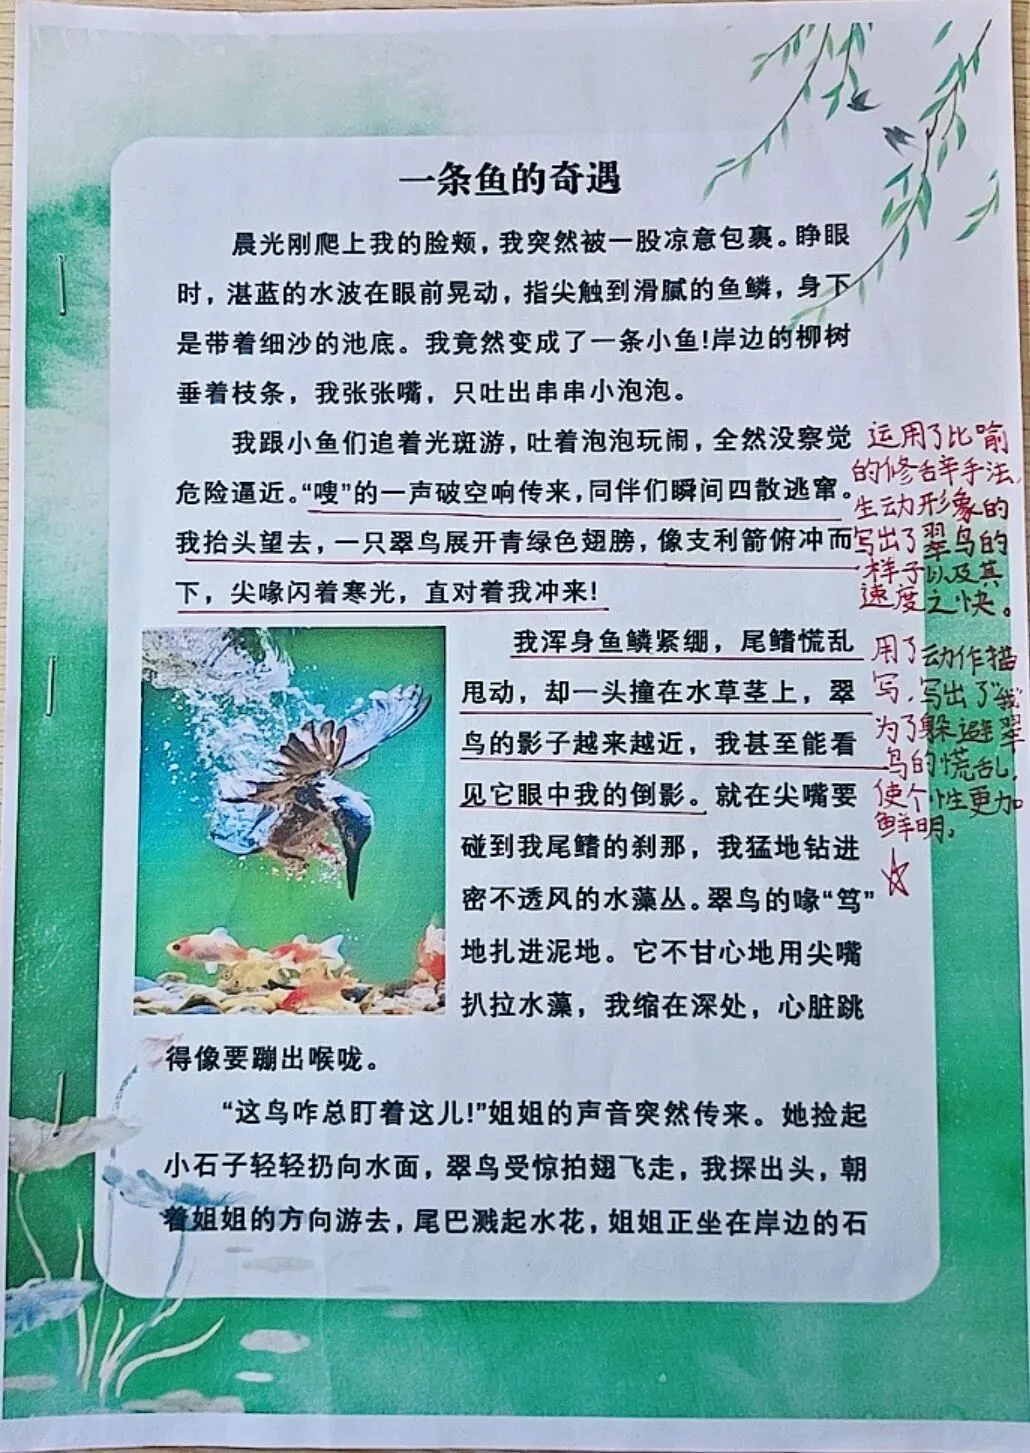 一条鱼的奇遇
晨光刚爬上我的脸颊，我突然被一股凉意包裹。睁眼
时，湛蓝的水波在眼前晃动，指尖触到滑腻的鱼鳞，身下
是带着细沙的池底。我竟然变成了一条小鱼！岸边的柳树
垂着枝条，我张张嘴，只吐出串串小泡泡。
我跟小鱼们追着光斑游，吐着泡泡玩闹，全然没察觉
危险逼近。“嗖”的一声破空响传来，同伴们瞬间四散逃窜。
我抬头望去，一只翠鸟展开青绿色翅膀，像支利箭俯冲而
下，尖喙闪着寒光，直对着我冲来！
我浑身鱼鳞紧绷，尾鳍慌乱
甩动，却一头撞在水草茎上，翠
鸟的影子越来越近，我甚至能看
见它眼中我的倒影。就在尖嘴要
碰到我尾鳍的刹那，我猛地钻进
密不透风的水藻丛。翠鸟的喙“笃”
地扎进泥地。它不甘心地用尖嘴
扒拉水藻，我缩在深处，心脏跳
得像要蹦出喉咙。
“这鸟咋总盯着这儿！”姐姐的声音突然传来。她捡起
小石子轻轻扔向水面，翠鸟受惊拍翅飞走，我探出头，朝
着姐姐的方向游去，尾巴溅起水花，姐姐正坐在岸边的石
运用了比喻
的修辞手法，
生动形象的
写出了翠鸟的
样子以及其
速度之快。
用了动作描
写，写出了“我”
为了躲避翠
鸟的慌乱，
使个性更加
鲜明。